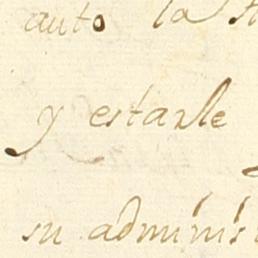 auto la
y estarle
su adminis